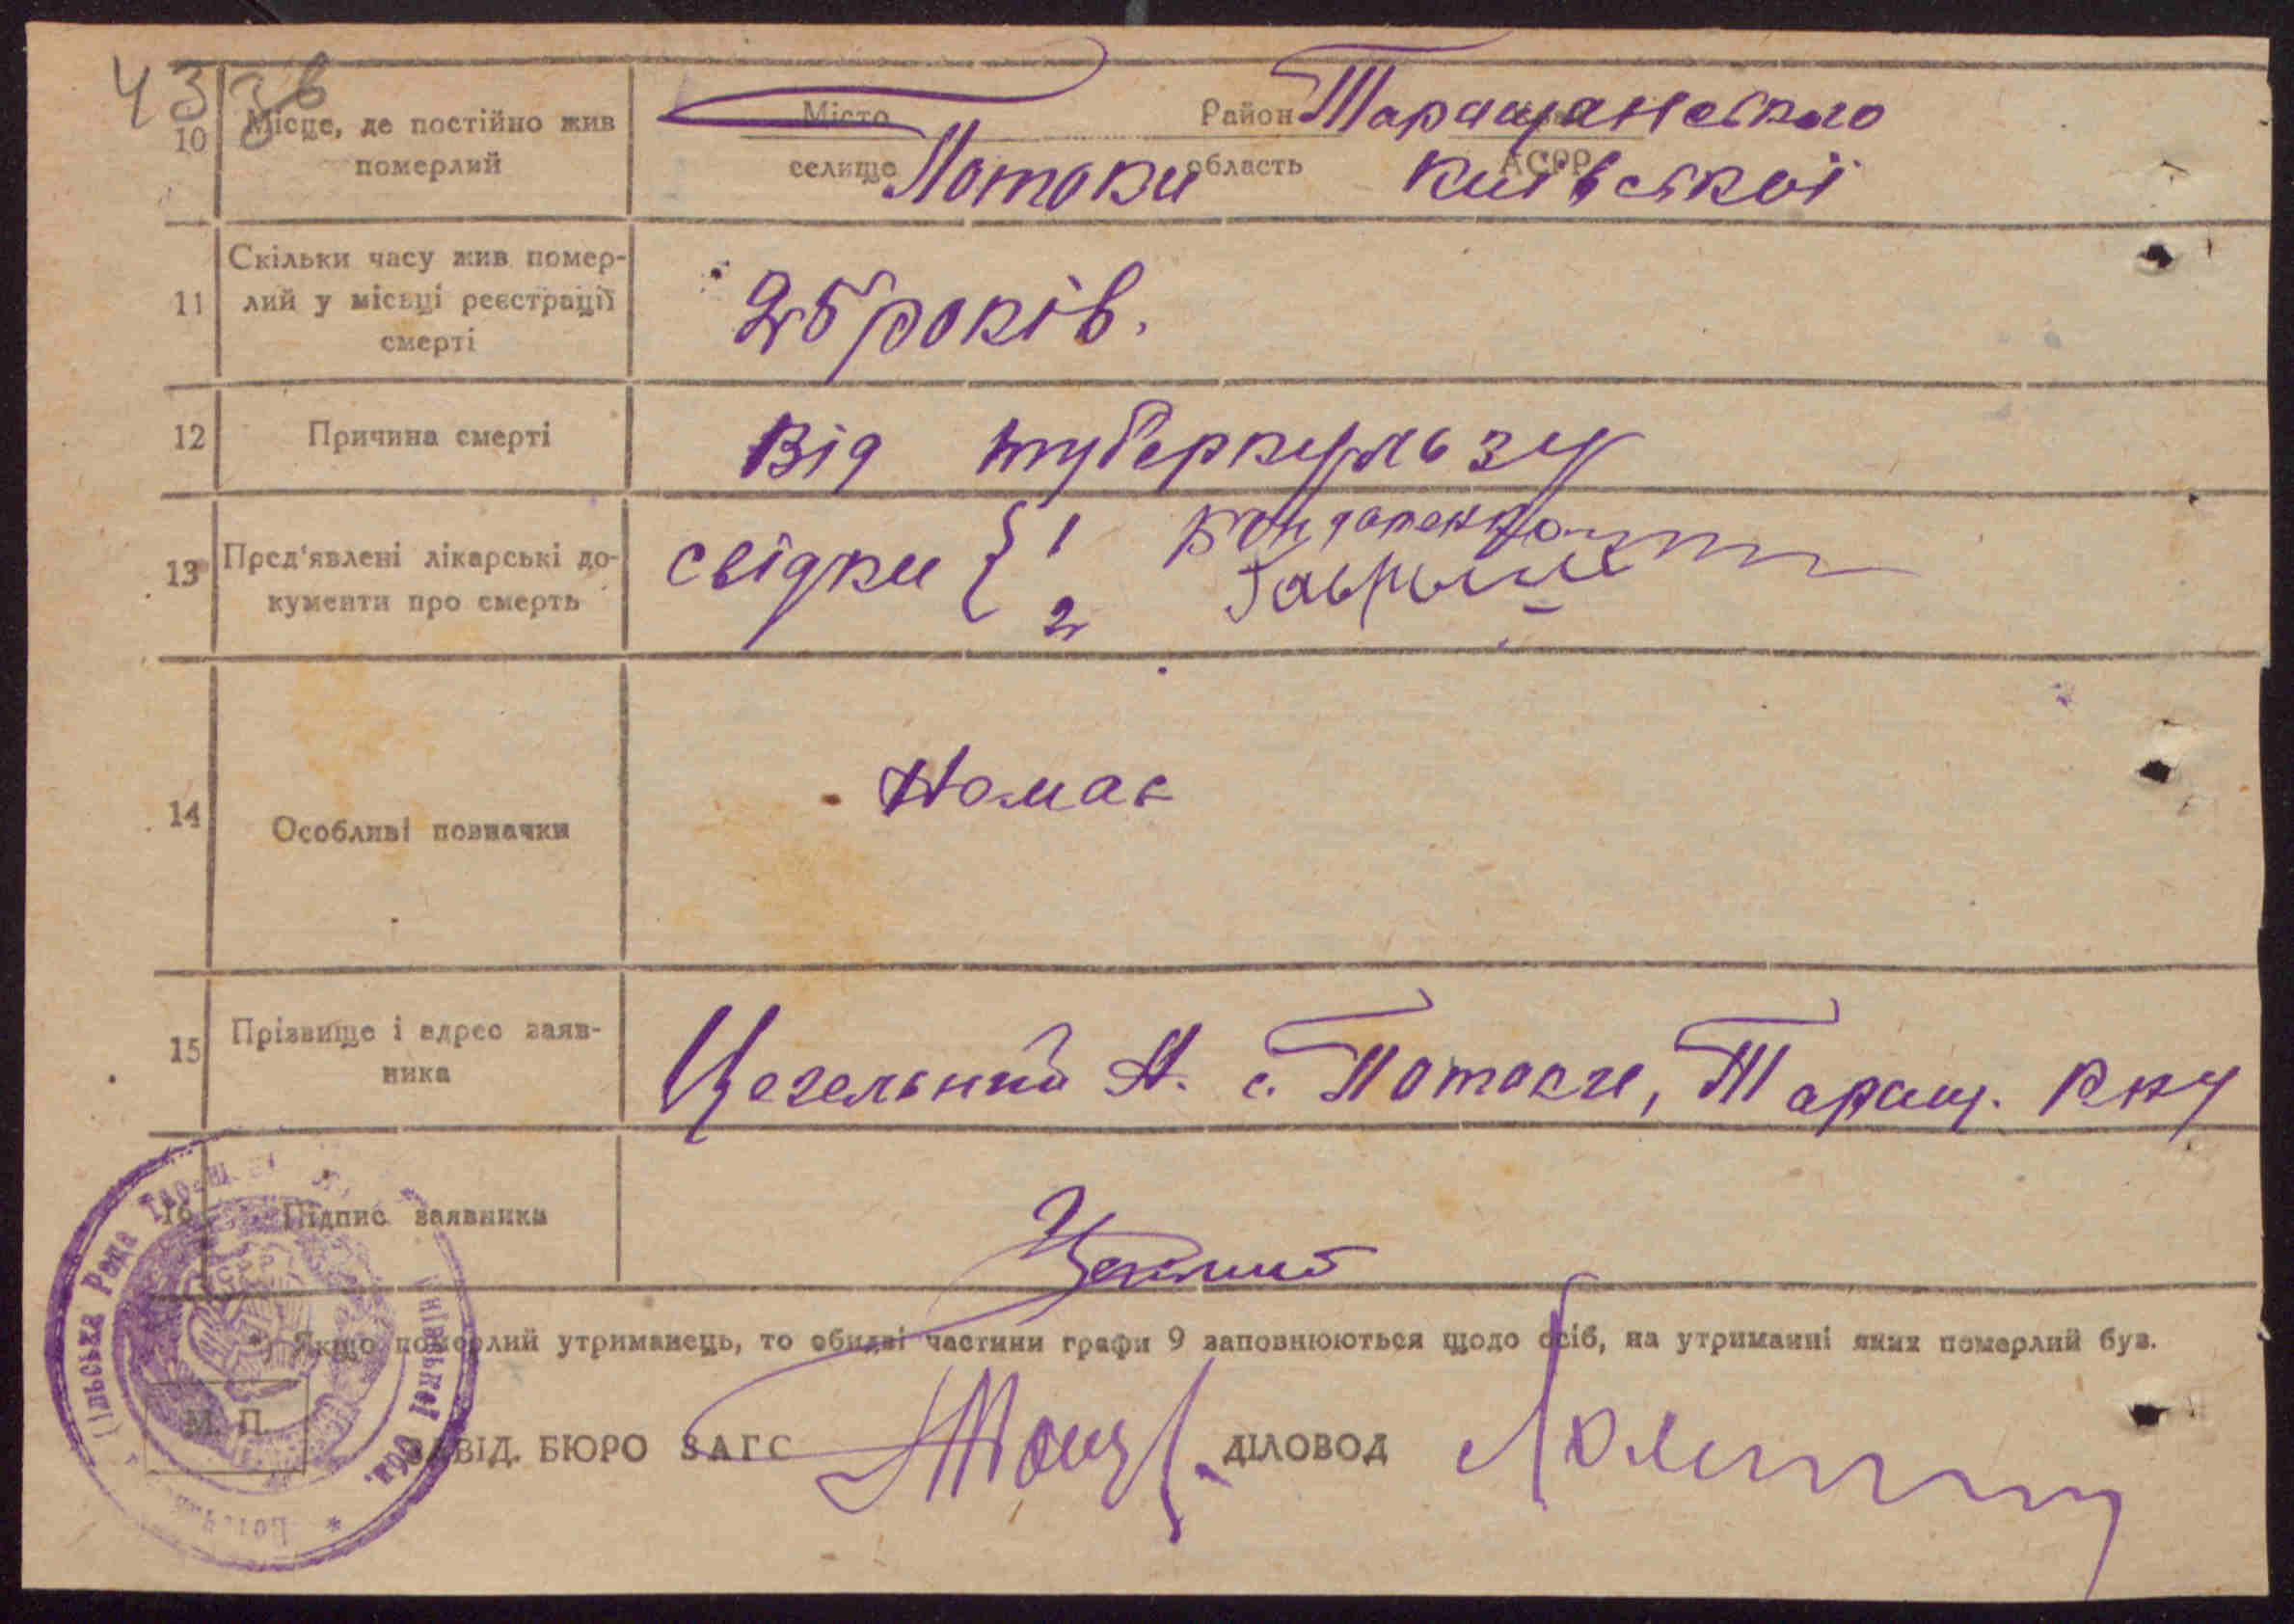 43 зв
10 Місце, де постійно жив померлий
Місто Район Таращанського
селище Потоки область АСРР Київської
11 Скільки часу жив померлий у місьці реєстрації смерті
25 років.
12 Причина смерті
Від туберкульзу
13 Пред'явлені лікарські документи про смерть
свідки { 1
2
14 Особливі позначки
Немає
15 Прізвище і адрес заявника
Цегельний А. с. Потоки, Таращ. р-ну
16 Підпис заявника
*) Якщо померлий утриманець, то обидві частини графи 9 заповнюються щодо осіб, на утриманні яких померлий був.
М. П.
ЗАВІД. БЮРО ЗАГС
ДІЛОВОД
Сільська Рада Київської обл.